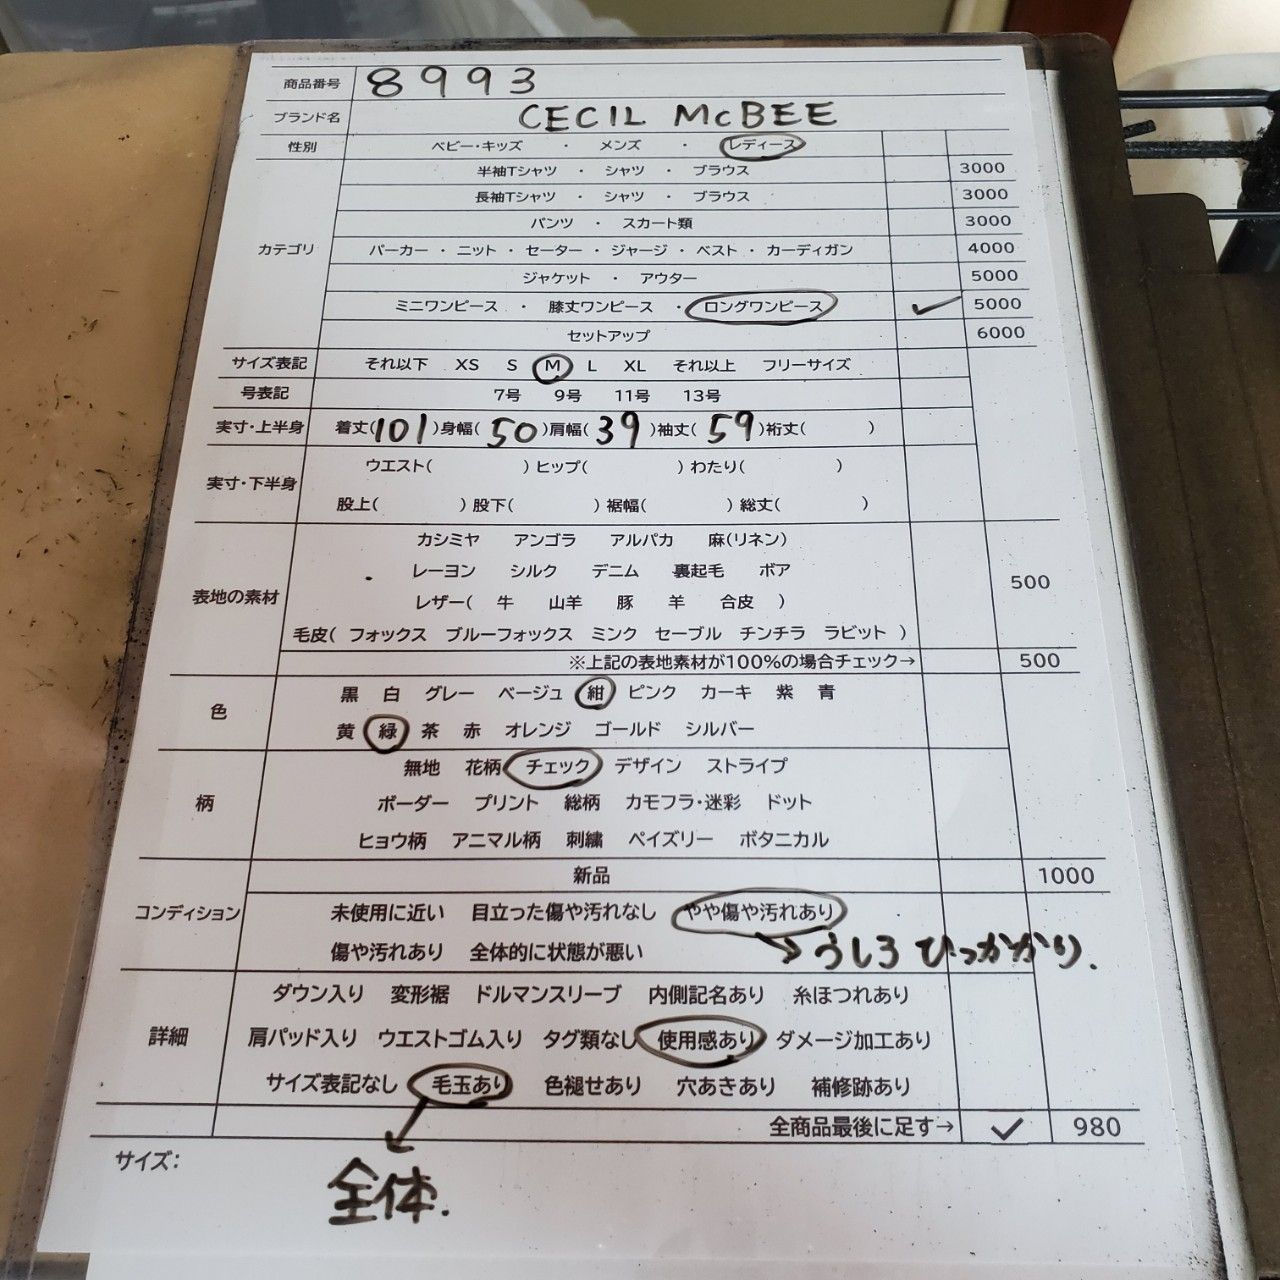 商品番号 8993
ブランド名 CECIL McBEE
性別 ベビー・キッズ ・ メンズ ・ レディース
半袖Tシャツ ・ シャツ ・ ブラウス 3000
長袖Tシャツ ・ シャツ ・ ブラウス 3000
パンツ ・ スカート類 3000
カテゴリ パーカー ・ ニット ・ セーター ・ ジャージ ・ ベスト ・ カーディガン 4000
ジャケット ・ アウター 5000
ミニワンピース ・ 膝丈ワンピース ・ ロングワンピース ✓ 5000
セットアップ 6000
サイズ表記 それ以下 XS S M L XL それ以上 フリーサイズ
号表記 7号 9号 11号 13号
実寸・上半身 着丈(101)身幅(50)肩幅(39)袖丈(59)裄丈( )
ウエスト( )ヒップ( )わたり( )
実寸・下半身
股上( )股下( )裾幅( )総丈( )
カシミヤ アンゴラ アルパカ 麻(リネン)
レーヨン シルク デニム 裏起毛 ボア 500
表地の素材 レザー( 牛 山羊 豚 羊 合皮 )
毛皮( フォックス ブルーフォックス ミンク セーブル チンチラ ラビット )
※上記の表地素材が100%の場合チェック→ 500
黒 白 グレー ベージュ 紺 ピンク カーキ 紫 青
色
黄 緑 茶 赤 オレンジ ゴールド シルバー
無地 花柄 チェック デザイン ストライプ
柄 ボーダー プリント 総柄 カモフラ・迷彩 ドット
ヒョウ柄 アニマル柄 刺繍 ペイズリー ボタニカル
新品 1000
コンディション 未使用に近い 目立った傷や汚れなし やや傷や汚れあり
傷や汚れあり 全体的に状態が悪い → うしろ ひっかかり.
ダウン入り 変形裾 ドルマンスリーブ 内側記名あり 糸ほつれあり
詳細 肩パッド入り ウエストゴム入り タグ類なし 使用感あり ダメージ加工あり
サイズ表記なし 毛玉あり 色褪せあり 穴あきあり 補修跡あり
全商品最後に足す→ ✓ 980
サイズ:
全体.